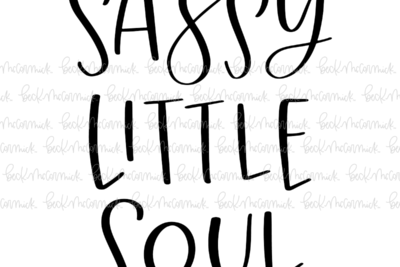 SASSY
LITTLE
SOUL